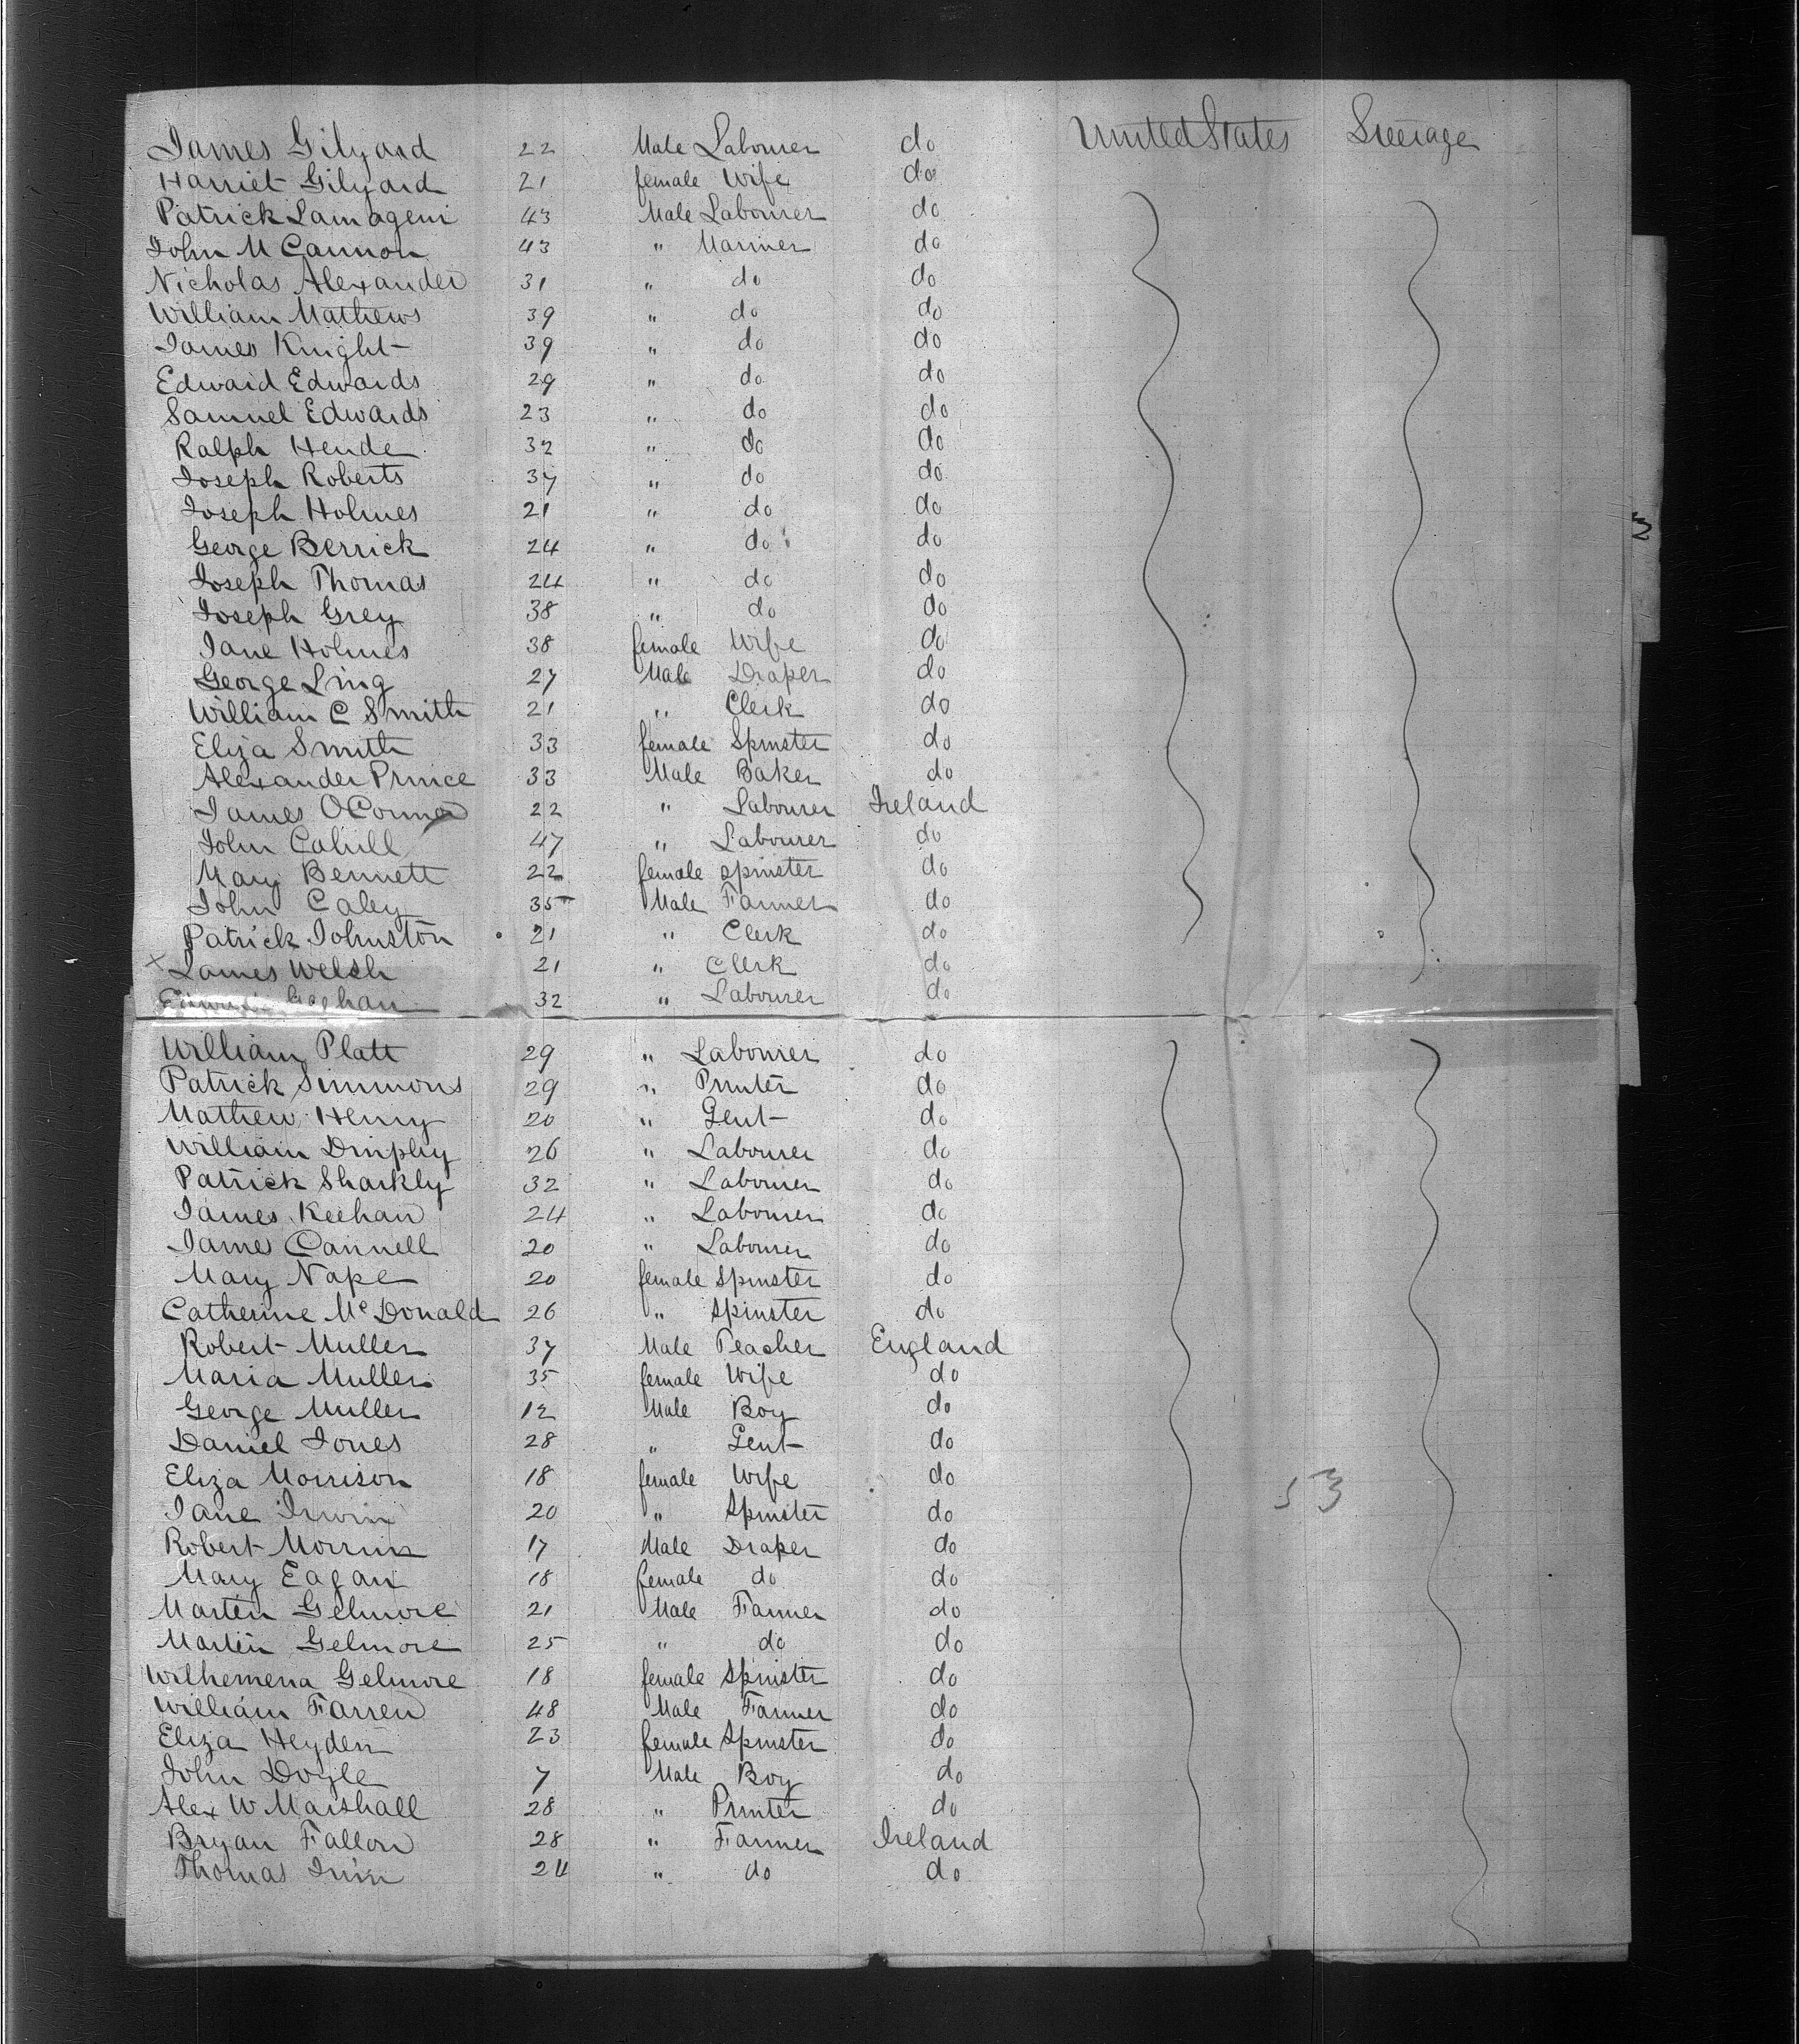 James Gilyard 22 Male Labourer do United States Steerage
Harriet Gilyard 21 female Wife do
Patrick Lamageni 43 Male Labourer do
John M Cannon 43 " Mariner do
Nicholas Alexander 31 " do do
William Mathews 39 " do do
James Knight 39 " do do
Edward Edwards 29 " do do
Samuel Edwards 23 " do do
Ralph Hende 32 " do do
Joseph Roberts 37 " do do
Joseph Holmes 21 " do do
George Berrick 24 " do do
Joseph Thomas 24 " do do
Joseph Grey 38 " do do
Jane Holmes 38 female Wife do
George Ling 27 Male Draper do
William C Smith 21 " Clerk do
Eliza Smith 33 female Spinster do
Alexander Prince 33 Male Baker do
James OConnor 22 " Labourer Ireland
John Cahill 47 " Labourer do
Mary Bennett 22 female spinster do
John Caley 35 Male Farmer do
Patrick Johnston 21 " Clerk do
x James Welsh 21 " Clerk do
Geehan 32 " Labourer do
William Platt 29 " Labourer do
Patrick Simmons 29 " Printer do
Mathew Henry 20 " Gent do
William Dmphy 26 " Labourer do
Patrick Sharkly 32 " Labourer do
James Keehan 24 " Labourer do
James Cannell 20 " Labourer do
Mary Nape 20 female Spinster do
Catherine Mc Donald 26 " Spinster do
Robert Muller 37 Male Teacher England
Maria Muller 35 female Wife do
George Muller 12 Male Boy do
Daniel Jones 28 " Gent do
Eliza Morrison 18 female Wife do
Jane Irwin 20 " Spinster do
Robert Morrin 17 Male Draper do
Mary Eagan 18 female do do
Marten Gelmore 21 Male Farmer do
Martin Gelmore 25 " do do
Wilhemena Gelmore 18 female Spinster do
William Farren 48 Male Farmer do
Eliza Heyden 23 female Spinster do
John Doyle 7 Male Boy do
Alex W Marshall 28 " Printer do
Bryan Fallon 28 " Farmer Ireland
Thomas 24 " do do
53